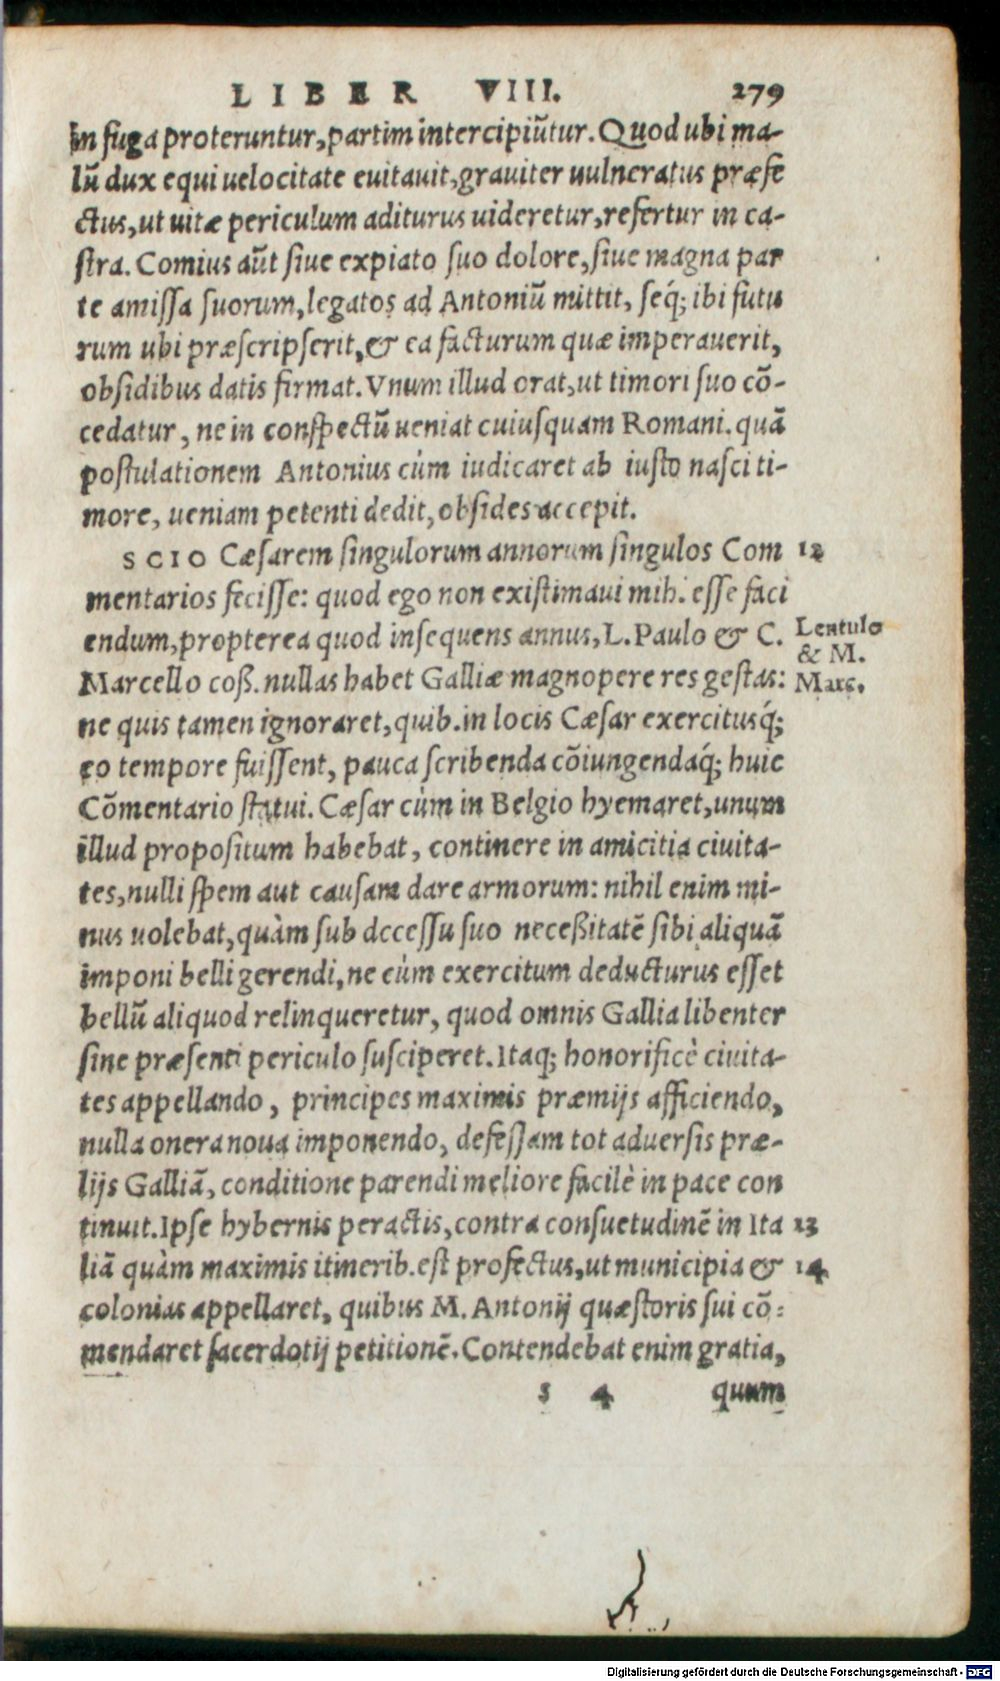 LIBER VIII. 279
in fuga proteruntur, partim intercipiũtur. Quod ubi ma-
lũ dux equi uelocitate euitauit, grauiter uulneratus præfe
ctus, ut uitæ periculum aditurus uideretur, refertur in ca-
stra. Comius aũt siue expiato suo dolore, siue magna par
te amissa suorum, legatos ad Antoniũ mittit, seq́; ibi futu
rum ubi præscripserit, & ea facturum quæ imperauerit,
obsidibus datis firmat. Vnum illud orat, ut timori suo cõ-
cedatur, ne in conspectũ ueniat cuiusquam Romani. quã
postulationem Antonius cùm iudicaret ab iusto nasci ti-
more, ueniam petenti dedit, obsides accepit.
SCIO Cæsarem singulorum annorum singulos Com 12
mentarios fecisse: quod ego non existimaui mih. esse faci
endum, propterea quod insequens annus, L. Paulo & C. Lentulo
& M.
Marcello coß. nullas habet Galliæ magnopere res gestas: Marc.
ne quis tamen ignoraret, quib. in locis Cæsar exercitusq́;
eo tempore fuissent, pauca scribenda cõiungendaq́; huic
Cõmentario statui. Cæsar cùm in Belgio hyemaret, unum
illud propositum habebat, continere in amicitia ciuita-
tes, nulli spem aut causam dare armorum: nihil enim mi-
nus uolebat, quàm sub decessu suo neceßitatẽ sibi aliquã
imponi belli gerendi, ne cùm exercitum deducturus esset
bellũ aliquod relinqueretur, quod omnis Gallia libenter
sine præsenti periculo susciperet. Itaq; honorificè ciuita-
tes appellando, principes maximis præmijs afficiendo,
nulla onera noua imponendo, defessam tot aduersis præ-
lijs Galliã, conditione parendi meliore facilè in pace con
tinuit. Ipse hybernis peractis, contra consuetudinẽ in Ita 13
liã quàm maximis itinerib. est profectus, ut municipia & 14
colonias appellaret, quibus M. Antonij quæstoris sui cõ-
mendaret sacerdotij petitionẽ. Contendebat enim gratia,
s 4 quum
Digitalisierung gefördert durch die Deutsche Forschungsgemeinschaft - DFG